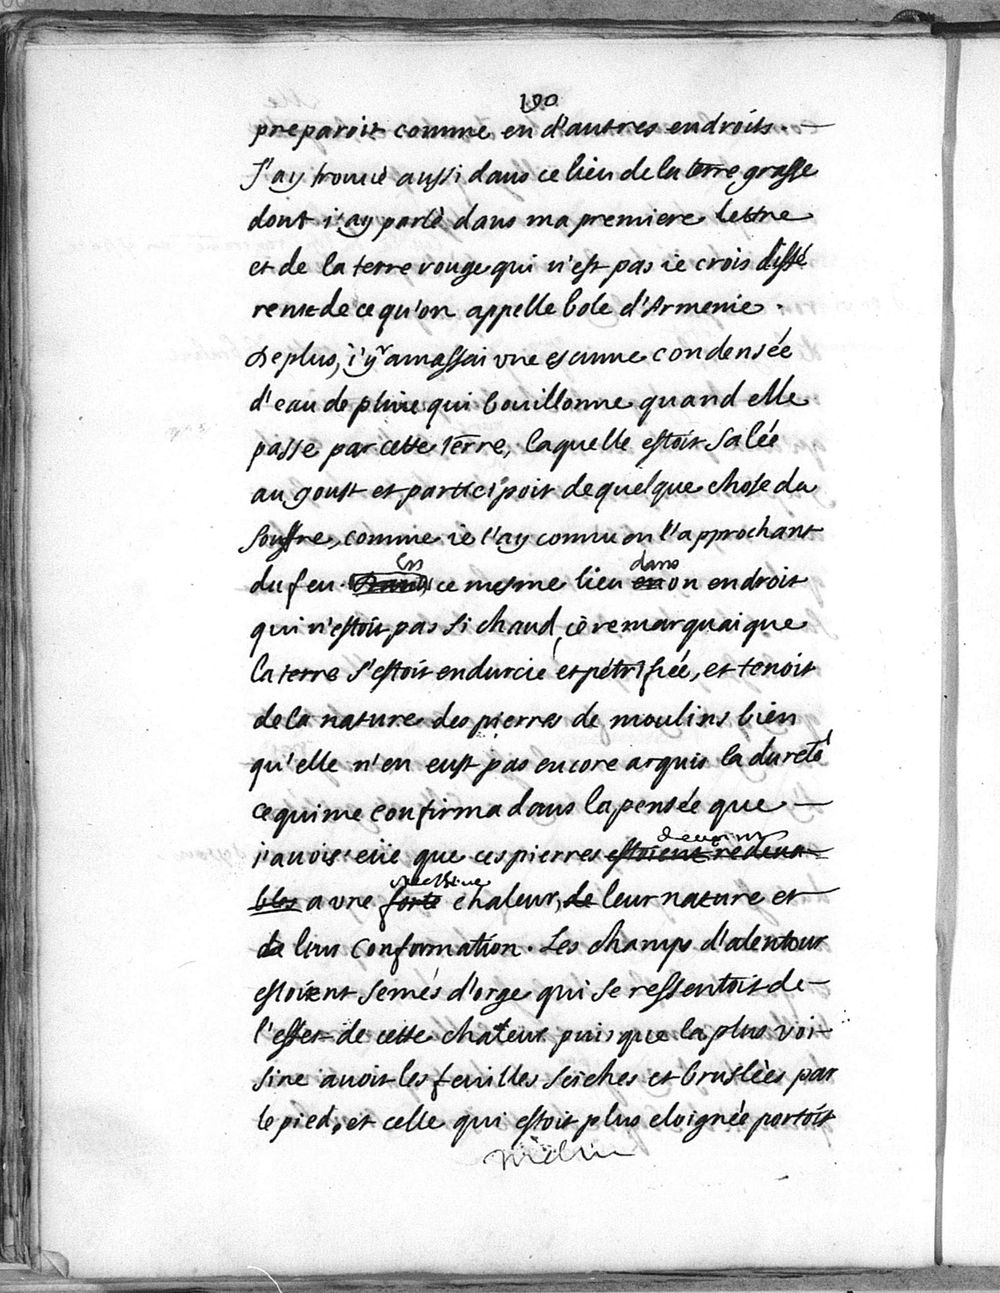 190
preparoit comme en d'autres endroits. —
J'ay trouué aussi dans ce lieu de la terre grasse
dont i'ay parlè dans ma premiere lettre
et de la terre rouge qui n'est pas ie crois diffé
rente de ce qu'on appelle bole d'Armenie.
De plus, i'y amassai vne escume condensée
d'eau de pluie qui bouillonne quand elle
passe par cette terre, laquelle estoit salée
au goust et participoit de quelque chose du
souffre, comme ie l'ay connu en l'approchant
En dans
du feu. Dans ce mesme lieu en on endroit
qui n'estoit pas si chaud, ie remarquai que
la terre s'estoit endurcie et pétrifiée, et tenoit
de la nature des pierres de moulins bien
qu'elle n'en eust pas encore acquis la dureté
ce qui me confirma dans la pensée que —
deuoient
j'auois eüe que ces pierres estoient redeua-
bles a vne forte chaleur, de leur nature et
de leur conformation. Les champs d'alentour
estoient semés d'orge qui se ressentoit de —
l'effet de cette chaleur puis que la plus voi-
sine auoit les feuilles seiches et bruslèes par
le pied, et celle qui estoit plus eloignée portoit